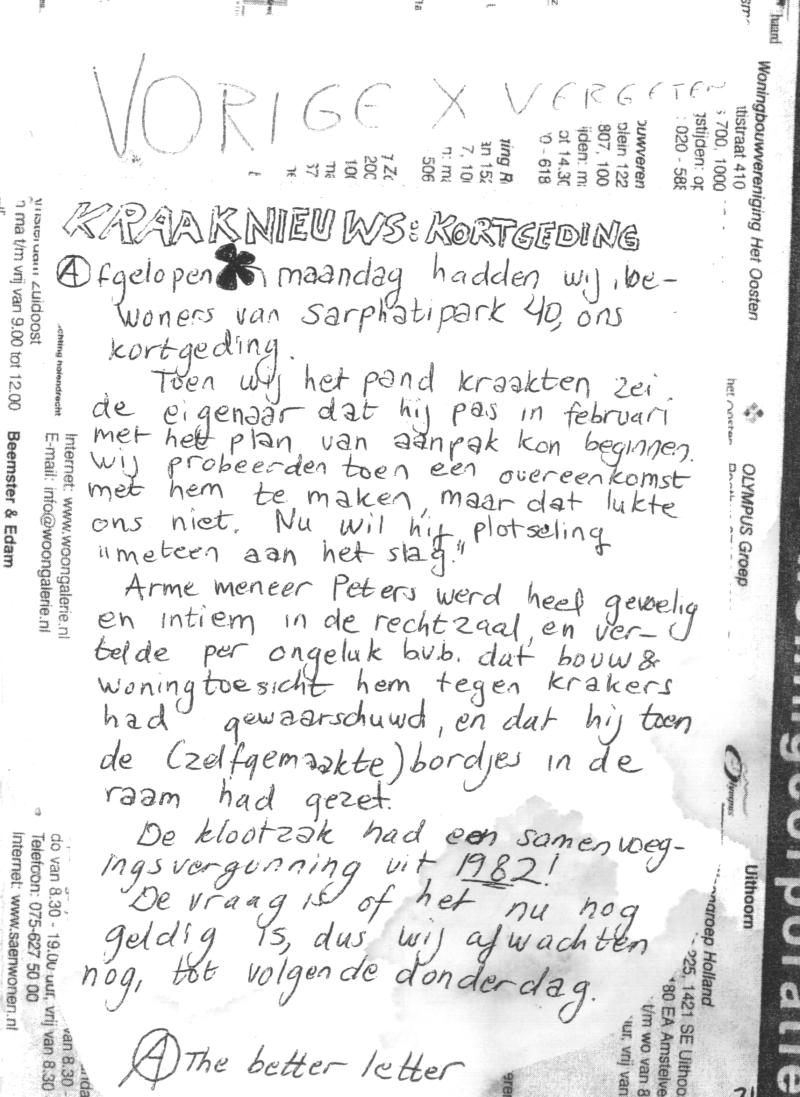 VORIGE X VERGETEN
KRAAKNIEUWS: KORTGEDING
Afgelopen maandag hadden wij, be-
woners van Sarphatipark 40, ons
kortgeding.
Toen wij het pand kraakten zei
de eigenaar dat hij pas in februari
met het plan van aanpak kon beginnen.
Wij probeerden toen een overeenkomst
met hem te maken, maar dat lukte
ons niet. Nu wil hij plotseling
"meteen aan het slag."
Arme meneer Peters werd heel gevoelig
en intiem in de rechtzaal, en ver-
telde per ongeluk b.v.b. dat bouw &
woningtoesicht hem tegen krakers
had gewaarschuwd, en dat hij toen
de (zelfgemaakte) bordjes in de
raam had gezet.
De klootzak had een samenvoeg-
ingsvergunning uit 1982!
De vraag is of het nu nog
geldig is, dus wij afwachten
nog, tot volgende donderdag.
A The better letter
haard
Woningbouwvereniging Het Oosten
ttistraat 410
700, 1000
stijden: op
: 020 - 58
ouwveren
plein 122
807, 100
ijden: m
ot 14.30
0 - 618
ning R
an 152
7, 10
n: m
506
7 Z
200
100
me
37
het oosten
OLYMPUS Groep
Olympus
Uithoorn
ngroep Holland
225, 1421 SE Uithoo
80 EA Amstelve
t/m wo van 8
uur, vrij van
woningcorporatie
Zuidoost
n ma t/m vrij van 9.00 tot 12.00
chting holendrecht
Internet: www.woongalerie.nl
E-mail: info@woongalerie.nl
Beemster & Edam
do van 8.30 - 19.00 uur, vrij van 8.30
Telefoon: 075-627 50 00
Internet: www.saenwonen.nl
van 8.30